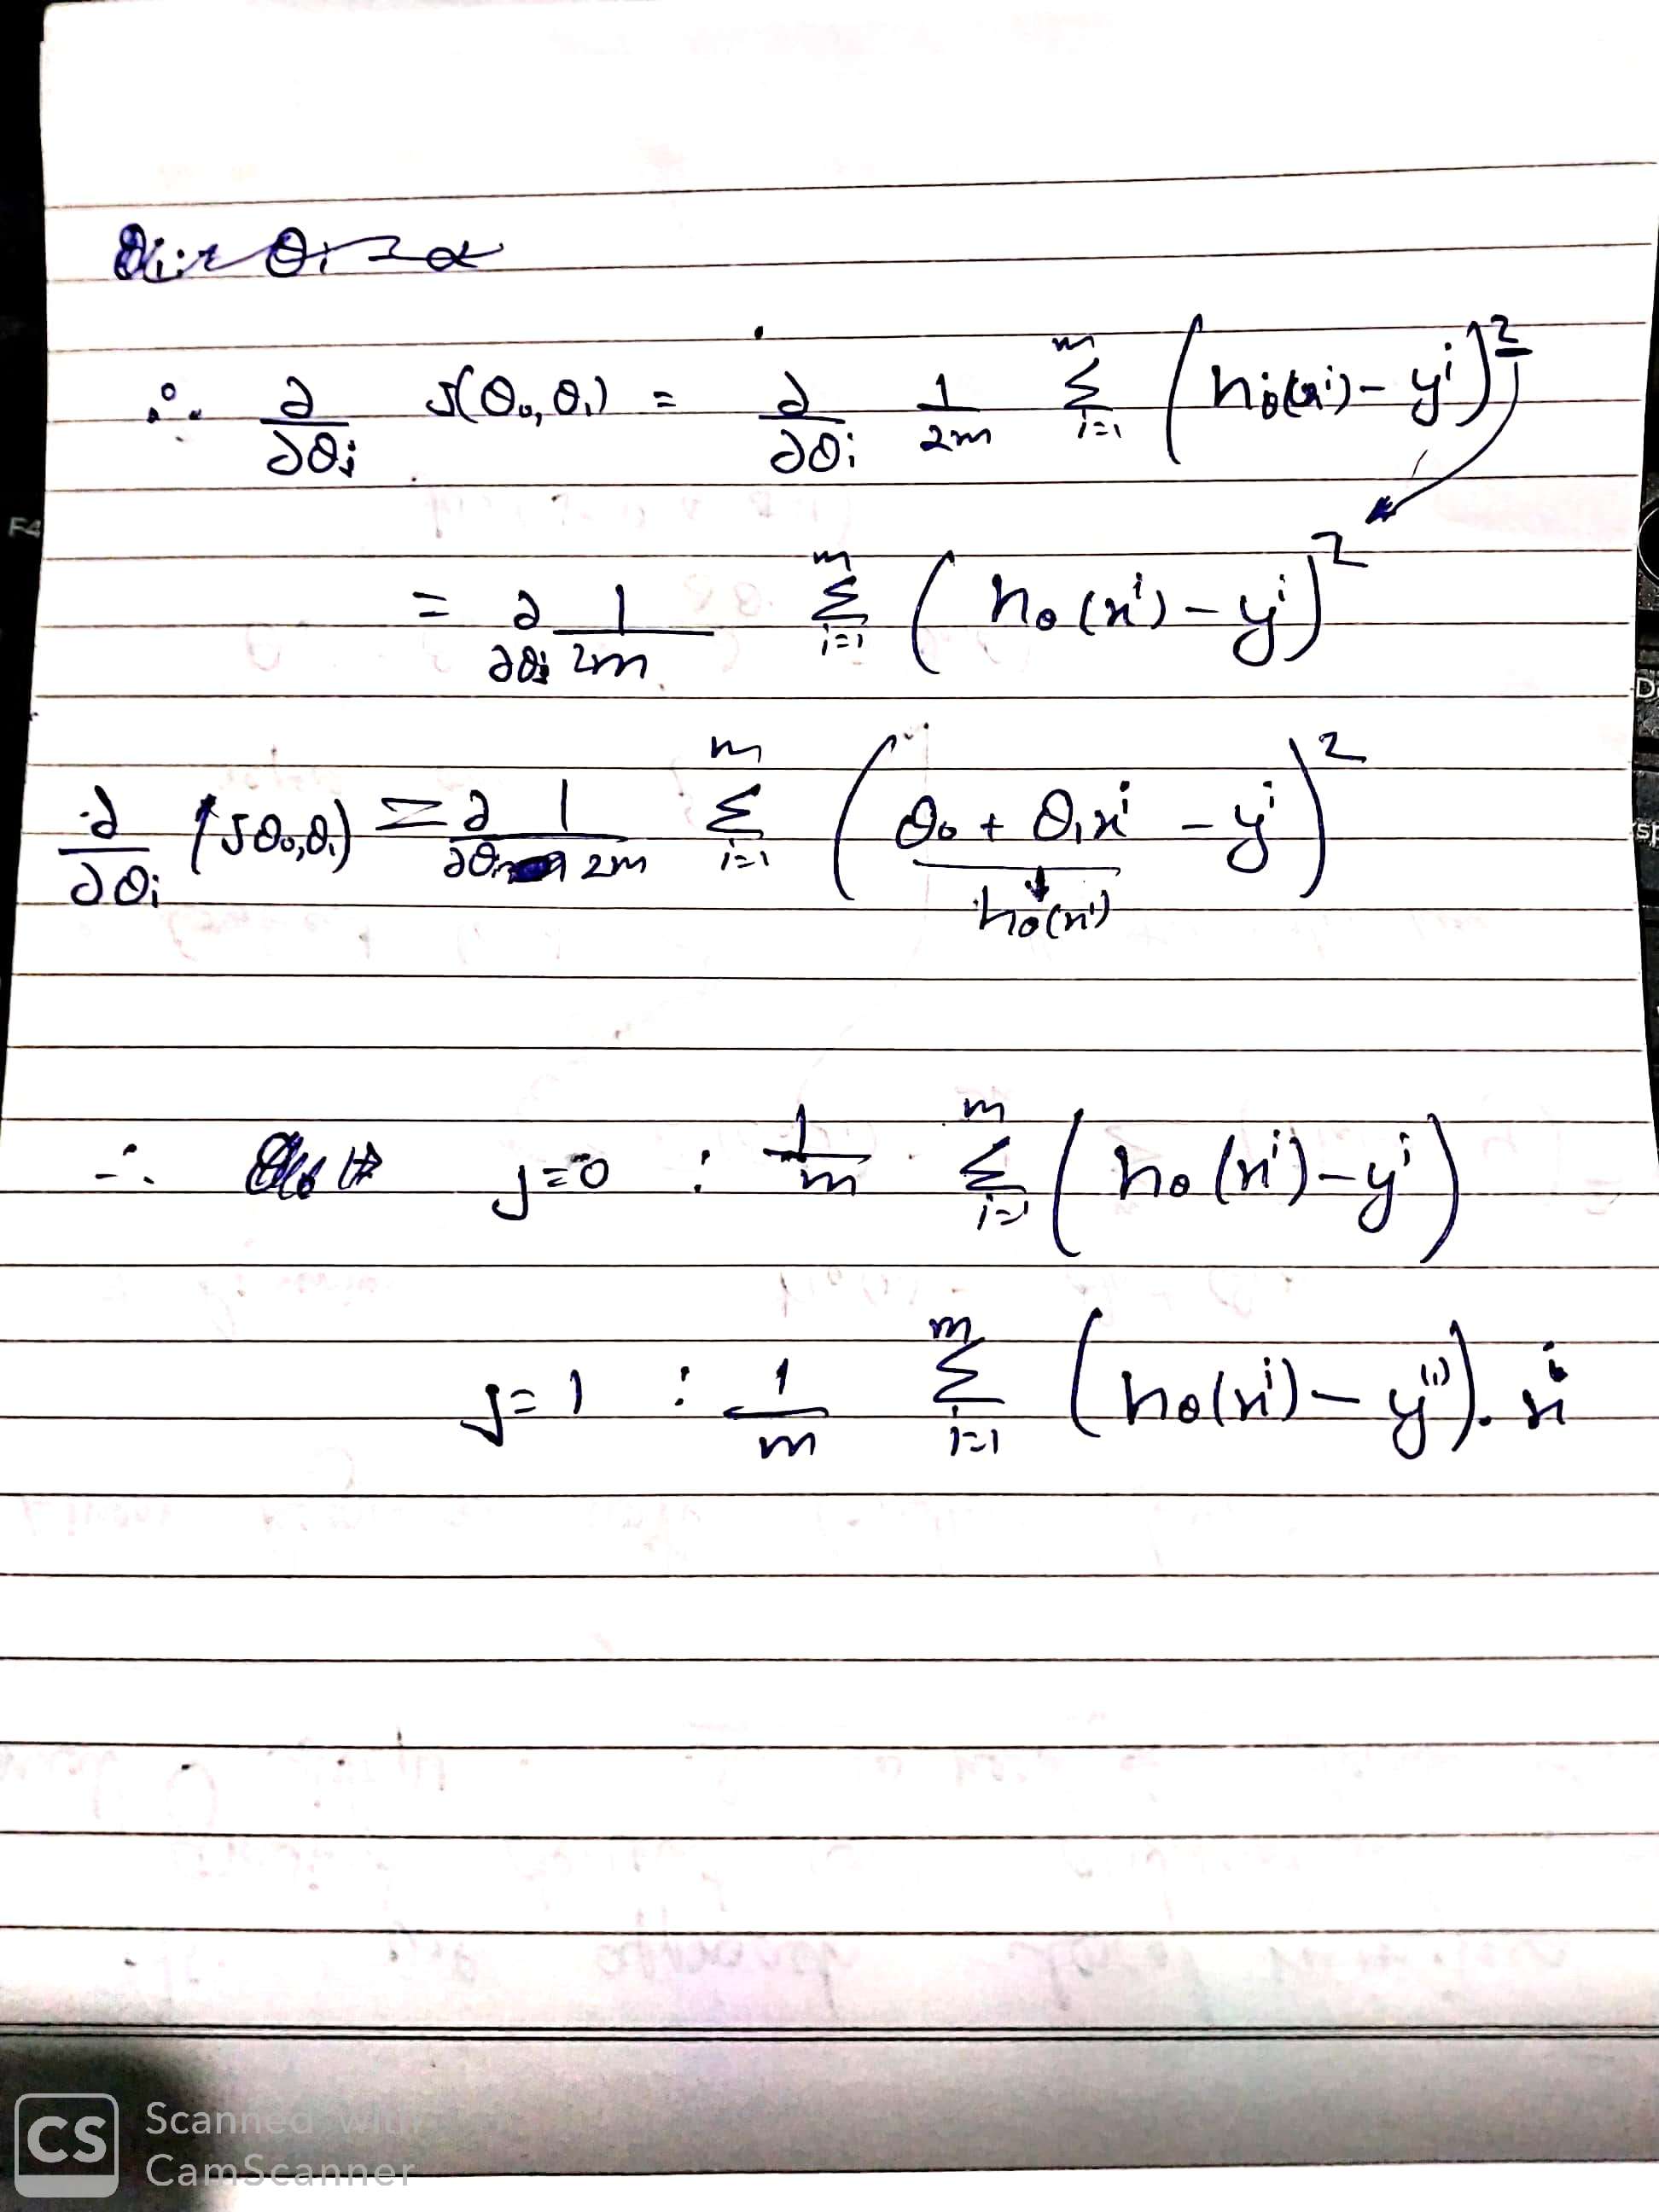 ∴ ∂/∂θj J(θ₀, θ₁) = ∂/∂θj 1/2m Σ_{i=1}^{m} (hθ(xⁱ) − yⁱ)²
= ∂/∂θj 1/2m Σ_{i=1}^{m} (hθ(xⁱ) − yⁱ)²
∂/∂θj (Jθ₀,θ₁) = ∂/∂θj 1/2m Σ_{i=1}^{m} (θ₀ + θ₁xⁱ − yⁱ)²
hθ(xⁱ)
∴ j=0 : 1/m Σ_{i=1}^{m} (hθ(xⁱ) − yⁱ)
j=1 : 1/m Σ_{i=1}^{m} (hθ(xⁱ) − y⁽ⁱ⁾). xⁱ
F4
CS Scanned with
CamScanner